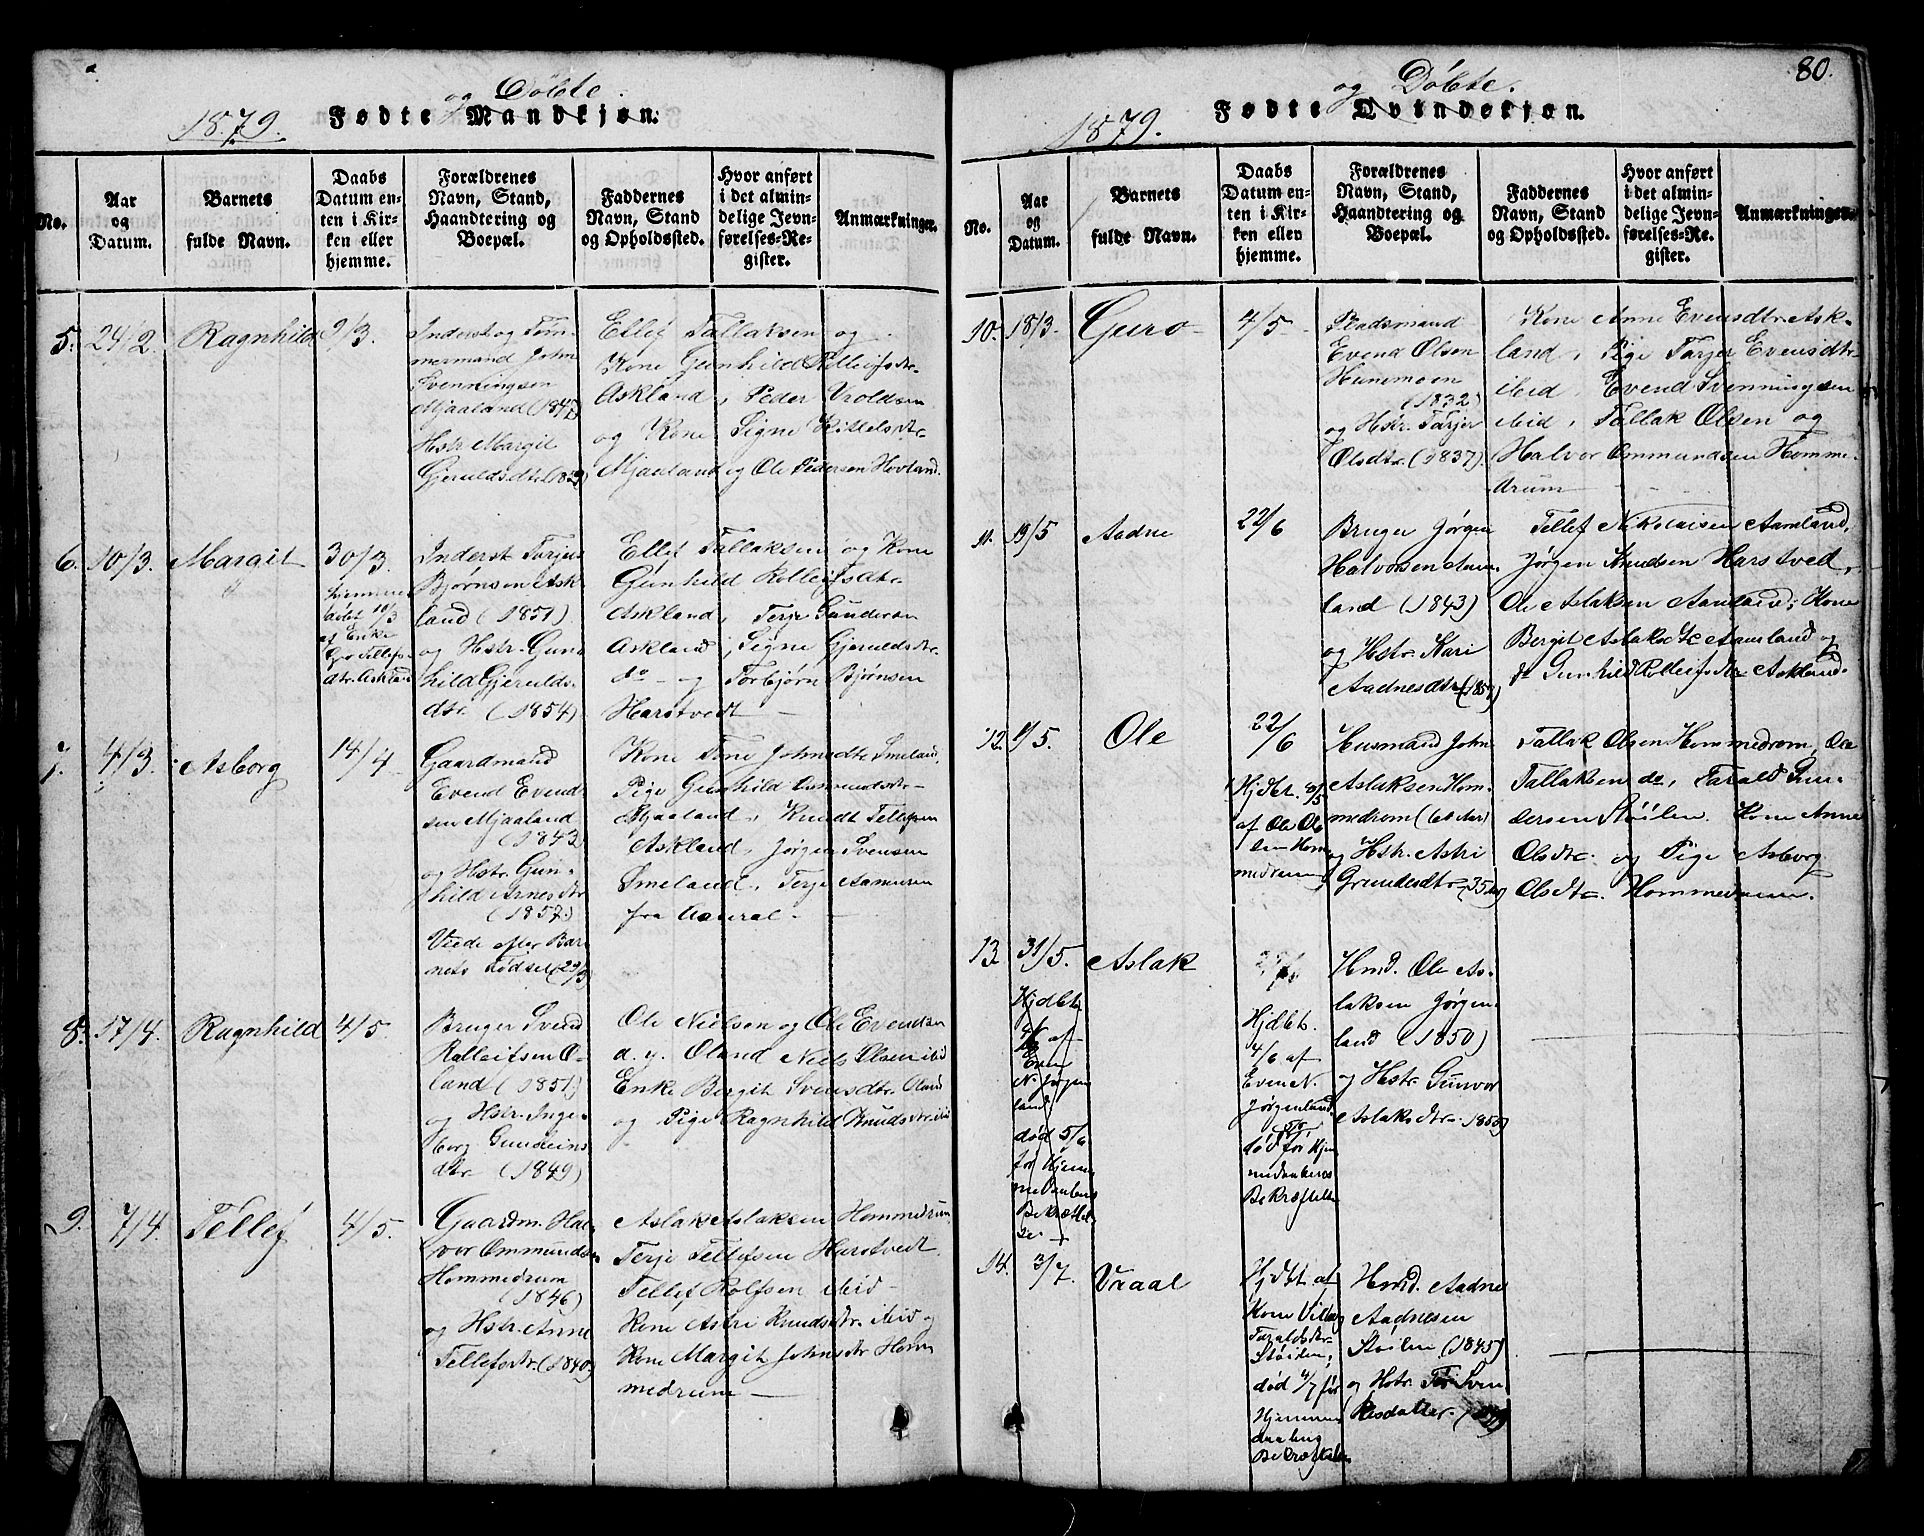 og Döbte.
1879. Fødte Mandkjøn.
No.
Aar
og
Datum.
Barnets
fulde Navn.
Daabs
Datum en-
ten i Kir-
ken eller
hjemme.
Forældrenes
Navn, Stand,
Haandtering og
Boepæl.
Faddernes
Navn, Stand
og Opholdssted.
Hvor anført
i det almin-
delige Jevn-
førelses-Re-
gister.
Anmærkninger.
5. 24/2. Ragnhild 9/3.
Inderst og Töm-
mermand John
Svenningsen
Mjaaland
Hstr Margit
Gjeruldsdtr
Ellef Tallaksen og
Kone Gunhild Rolleifsdtr.
Askland, Peder Vroldsen
og Kone Signe Kittelsdtr.
Mjaaland og Ole Pedersen Hovland.
6. 10/3. Margit 30/3.
hjemme
döbt 10/3
af Enke
Gro Tellefs-
dtr. Askland
Inderst Torjus
Bjørnsen Ask-
land (1851)
og Hstr. Gun-
hild Gjerulds-
dtr. (1854)
Ellef Tallaksen og Kone
Gunhild Rolleifsdtr.
Askland, Terje Gundersen
Askland, Signe Gjeruldsdtr.
do - og Torbjørn Bjørnsen
Harstvedt -
7. 4/3. Asborg 14/4
Gaardmand
Evend Evend-
sen Mjaaland
(1843
og Hstr. Gun-
hild Arnesdtr
(1857)
Viede efter Bar-
nets Födsel (23/3)
Kone Tone Johnsdtr Smeland,
Pige Gunhild Ommundsdtr -
Mjaaland, Knudt Tellefsen
Askland, Jørgen Svensen
Smeland, Terje Aamusen
fra -
8. 17/4. Ragnhild 4/5.
Bruger Svend
Rolleifsen O-
land (1851)
og Hstr. Inge-
borg Gundeins
dtr. (1849)
Ole Nielsen og Ole Evendsen
d. y. Oland Niels Olsen ibid
Enke Bergit Svensdtr. Oland
og Pige Ragnhild Knudsdtr. ibid
9. 7/4. Tellef 4/5.
Gaardm. Hal-
vor Ommunds-
Hommedrum
(1846)
og Hstr. Anne
Tellefsdtr. (1840)
Aslak Aslaksen Hommedrum,
Terje Tellefsen Harstvedt.
Tellef Rolfsen ibid -
Kone Astri Knudsdtr. ibid og
Kone Margit Johnsdtr Hom
medrum -
80.
og Döbte.
1879. Fødte Qvindekjøn.
No.
Aar
og
Datum.
Barnets
fulde Navn.
Daabs
Datum en-
ten i Kir-
ken eller
hjemme.
Forældrenes
Navn, Stand,
Haandtering og
Boepæl.
Faddernes
Navn, Stand
og Opholdssted.
Hvor anført
i det almin-
delige Jevn-
førelses-Re-
gister.
Anmærkninger.
10. 18/3. Guro 4/5
Pladsmand
Evend Olsen
Hunemoen
(1832)
og Hstr. Torjer
Olsdtr. (1837)
Kone Anne Evensdtr. Ask-
land, Pige Torjer Evensdtr.
ibid, Evend Svenningsen
ibid, Tallak Olsen og
Halvor Ommundsen Homme-
drum
11. 19/5 Aadne 22/6
Bruger Jørgen
Halvorsen Aam-
land (1843)
og Hstr. Kari
Aadnesdtr
Tellef Nikolaisen Aamland,
Jørgen Knudsen Harstved,
Ole Aslaksen Aamland, Kone
Bergit Aslaksdtr Aamland og
do Gunhild Rolleifsdtr Askland.
12. 1/5. Ole 22/6
Hjdbt.
af Ole Ol
sen Hom
medrum
Husmand John
Aslaksen Hom-
medrom (60 Aar)
og Hstr. Astri
Grundesdtr. (35 Aar)
Tallak Olsen Hommedrom, Ole
Tallaksen do, Tarald Gun-
dersen Støilen. Kone Anne
Olsdtr. og Pige Asborg
Olsdtr. Hommedrum.
13. 31/5. Aslak
Hjdbt.
4/6 af
Even
N. Jørgen
land
död 5/6
før Hjem
medaabens
Bekræftel
se
Hjdbt.
4/6 af
Even N.
Jørgenland
död 5/6 før Hjem
medaabens
Bekræftelse
Hmd. Ole As-
laksen Jørgen-
land (1850)
og Hstr. Gunvor
Aslaksdtr. 1850)
14. 3/7. Vraal
Hjdbt af
Kone Vilborg
Taraldsdtr.
Støilen,
död 4/7 før
Hjemme
daabens
Bekræftelse
Hmd. Aadne
Aadnesen
Støilen (1845)
og Hstr. Tor Sven
kesdatter.